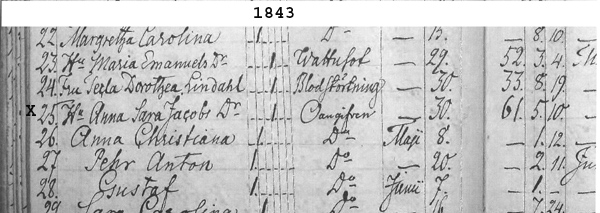 1843
22. Margretha Carolina 1. Do — 15. — 8. 10.
23. Hu Maria Emanuels Dr 1. Wattusot — 29. 52. 3. 4.
24. Fru Tecla Dorothea Lindahl 1. Blodstörtning — 30. 33. 8. 19.
X 25. Hu Anna Sara Jacobs Dr 1. Oangifven — 30. 61. 5. 10.
26. Anna Christiana 1. Do Maji 8. — 1. 12.
27. Pehr Anton 1. Do — 20. — 2. 11.
28. Gustaf 1. Do Junii 7. — 1. —
29. Sara Carolina 1. Do — 16. — 7. 24.